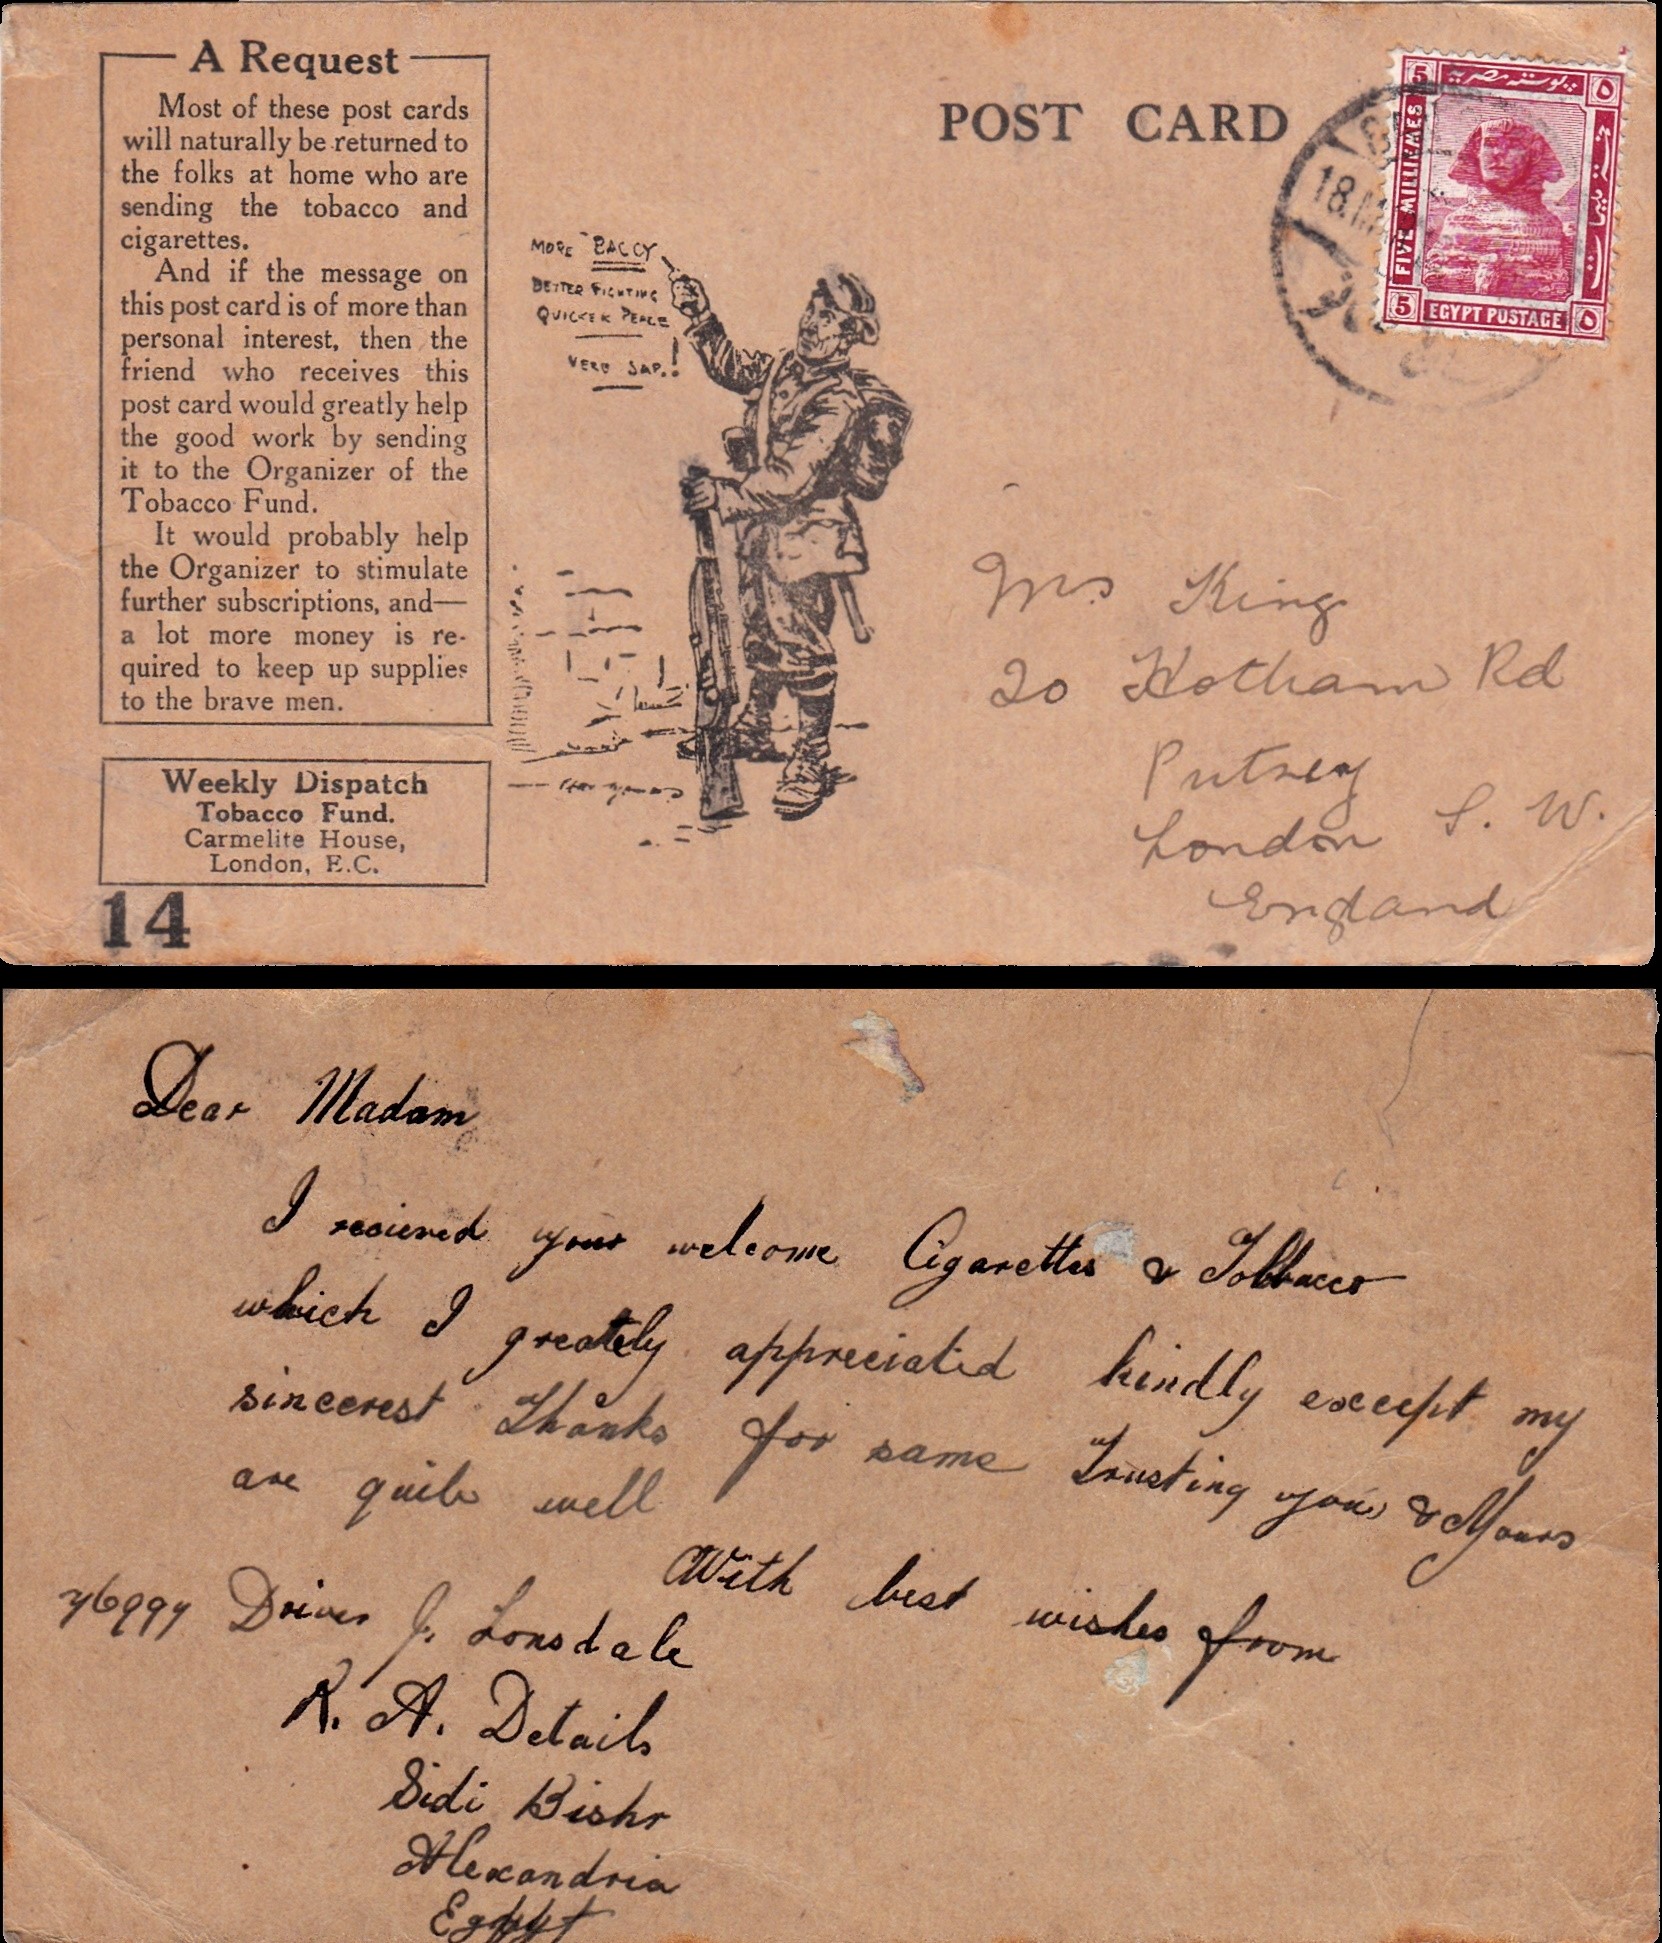 A Request
Most of these post cards
will naturally be returned to
the folks at home who are
sending the tobacco and
cigarettes.
And if the message on
this post card is of more than
personal interest, then the
friend who receives this
post card would greatly help
the good work by sending
it to the Organizer of the
Tobacco Fund.
It would probably help
the Organizer to stimulate
further subscriptions, and—
a lot more money is re-
quired to keep up supplies
to the brave men.
Weekly Dispatch
Tobacco Fund.
Carmelite House,
London, E.C.
14
MORE BACCY
BETTER FIGHTING
QUICKER PEACE
VERB SAP.!
POST CARD
18.M
5 بوسته مصرية ٥
FIVE MILLIEMES
5 EGYPT POSTAGE ٥
Mrs King
20 Hotham Rd
Putney
London S. W.
England
Dear Madam
I recieved your welcome Cigarettes & Tobbacco
which I greately appreciated kindly except my
sincerest Thanks for same Trusting you & Yours
are quite well
With best wishes from
Driver J. Lonsdale
R. A. Details
Sidi Bishr
Alexandria
Egypt